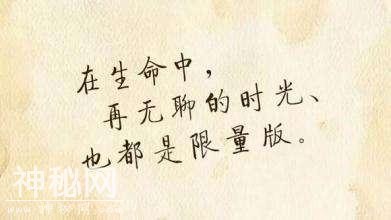 在生命中，
再无聊的时光、
也都是限量版。
神秘网